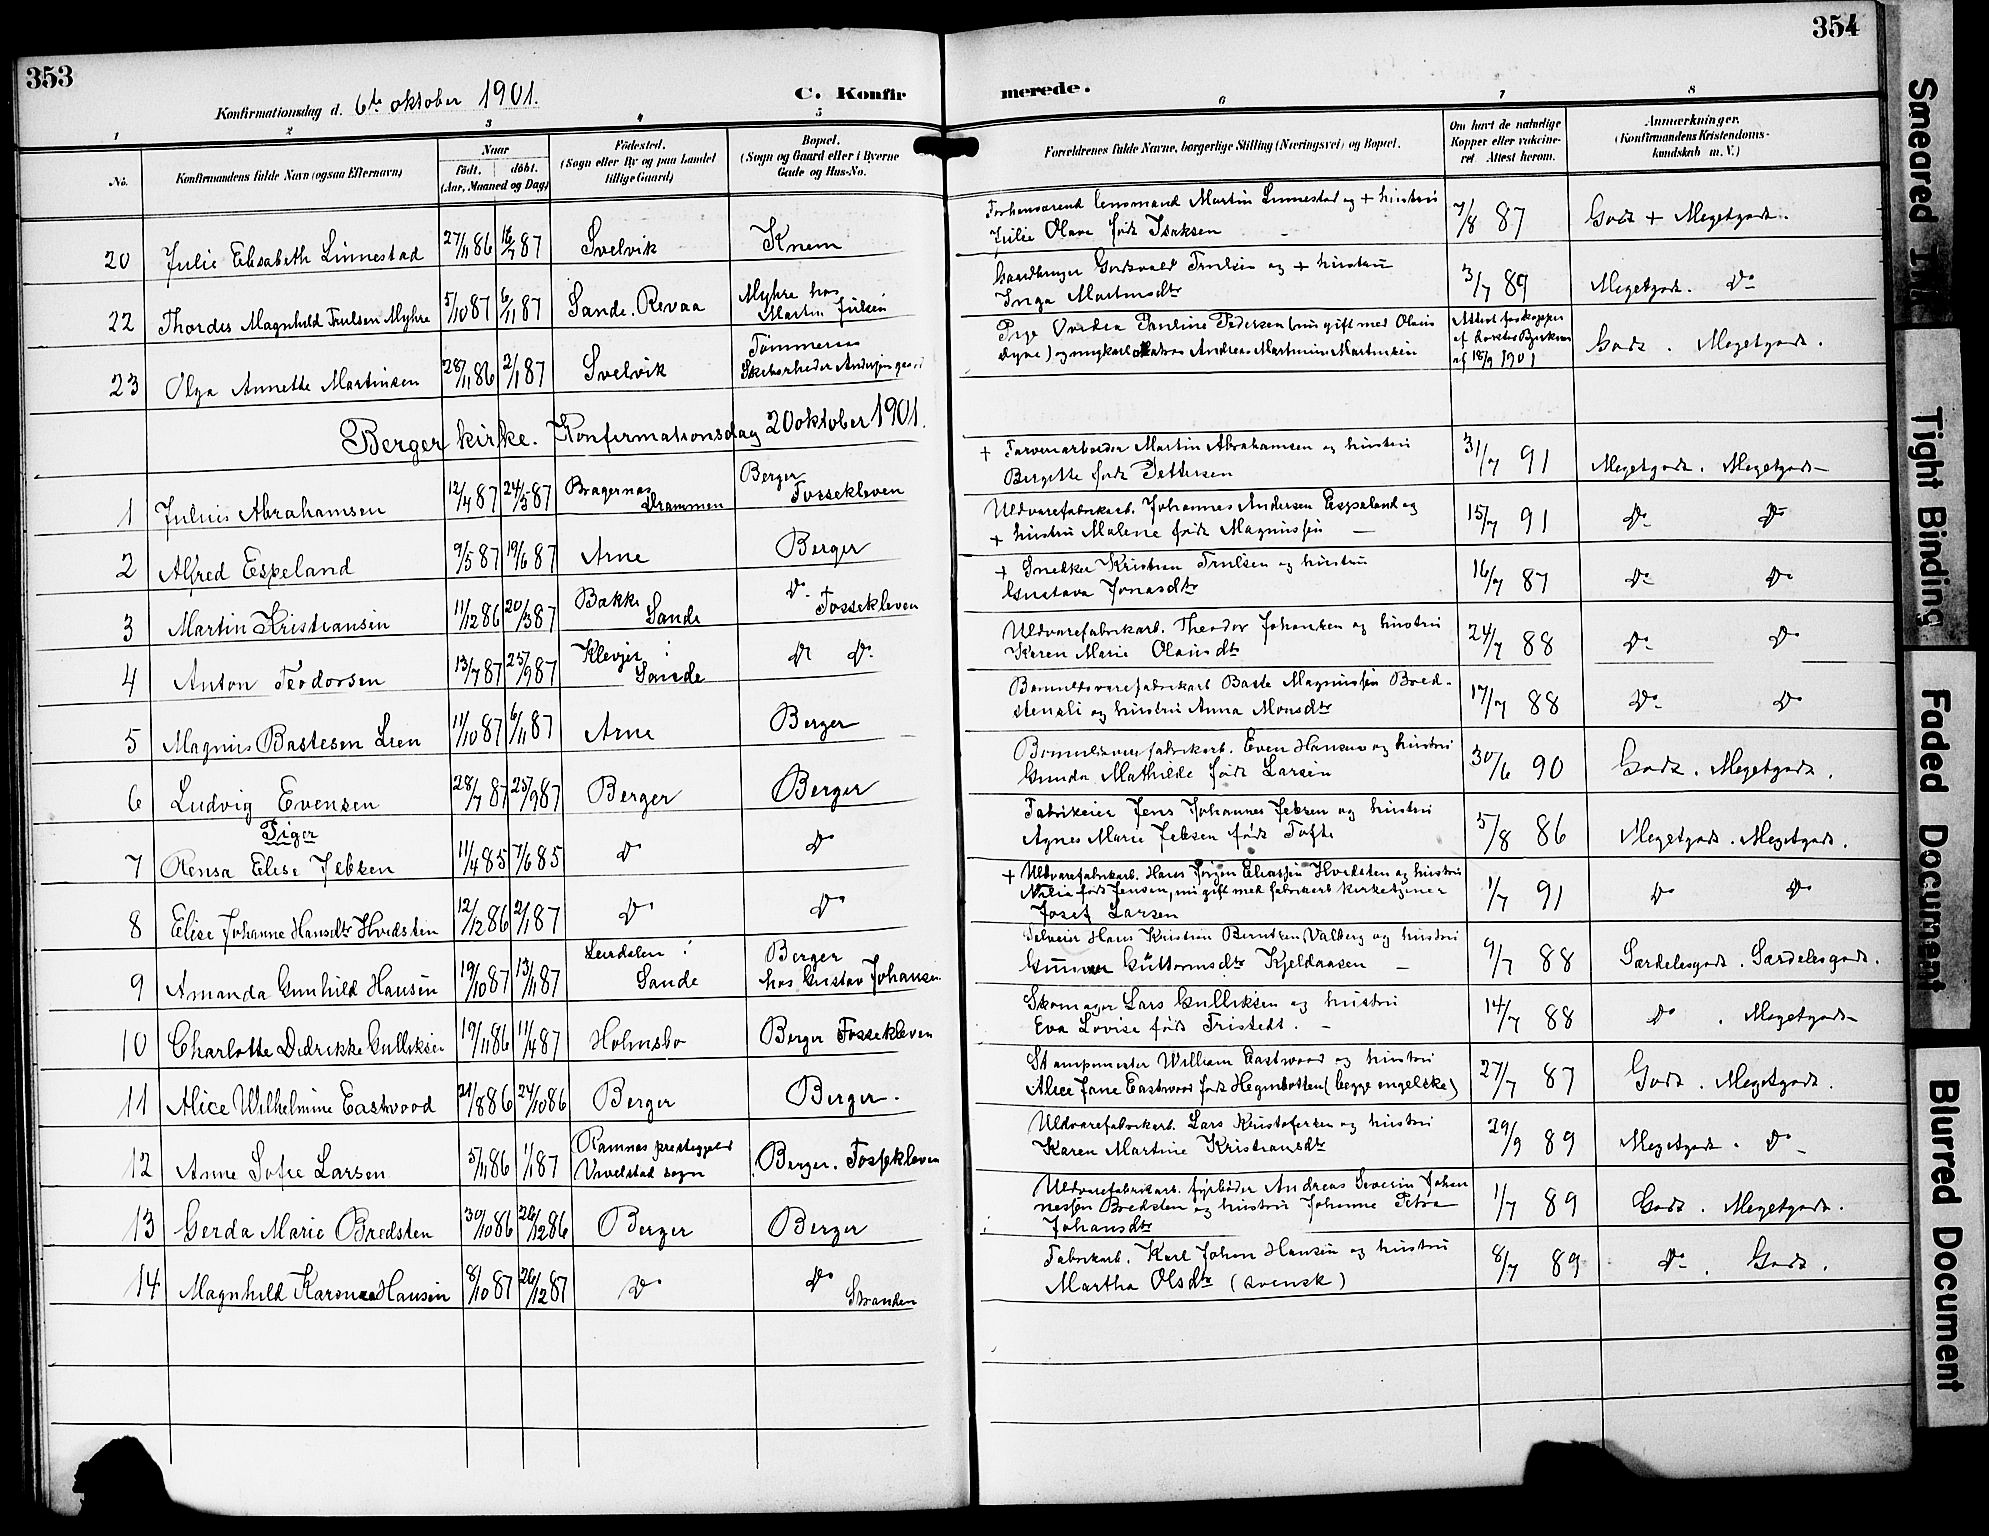 353
354
Konfirmationsdag d. 6te oktober 1901.
C. Konfir
merede.
1 2 3 4 5 6 7 8
No.
Konfirmandens fulde Navn (ogsaa Efternavn)
Naar
født. døbt.
(Aar, Maaned og Dag)
Fødested.
(Sogn eller By og paa Landet
tillige Gaard)
Bopæl.
(Sogn og Gaard eller i Byerne
Gade og Hus-No.
Forældrenes fulde Navne, borgerlige Stilling (Næringsvei) og Bopæl.
Om havt de naturlige
Kopper eller vakcine-
ret Attest herom.
Anmærkninger.
(Konfirmandens Kristendoms-
kundskab m. V.)
20 Julie Elisabeth Linnestad 27/11 86 /7 87 Svelvik Knem
Forhenværend lensmand Martin Linnestad og + hustru
Julie Olava født Isaksen
7/8 87 Godt + Megetgodt.
22 Thordis Magnhild Trulsen Myhre 5/10 87 6/11 87 Sande. Revaa Myhre hos
Martin Julsen
Gaardbruger Godtvald Trulsen og + hustru
Inga Martinsdtr
3/7 89 Megetgodt. Do
23 Olga Annette Martinsen 28/11 86 2/1 87 Svelvik Tømmeraas
Pige Pauline Pedersen (nu gift med Olaus
Dyne) og ungkarl Andreas Martinius Martinsen
Attest for kopper
af 18/9 1901
Godt. Megetgodt.
Berger kirke. Konfirmationsdag 20 oktober 1901.
1 Julius Abrahamsen 12/4 87 24/5 87 Bragernæs
Drammen
Berger
Fossekleven
+ Farveriarbeider Martin Abrahamsen og hustru
Bergitte født Pettersen
31/7 91 Megetgodt. Megetgodt
2 Alfred Espeland 9/5 87 19/6 87 Arne Berger
Uldvarefabrikarb. Johannes Andersen Espeland og
+ hustru Malene født Magnussen
15/7 91 Do Do
3 Martin Kristiansen 11/12 86 20/3 87 Bakke
Sande
Do Fossekleven
+ Snedker Kristian Trulsen og hustru
Gustava Jonasdtr
16/7 87 Do Do
4 Anton Teodorsen 13/7 87 25/9 87 Klevjer i
Sande
Do Do
Uldvarefabrikarb. Theodor Johansen og hustru
Karen Marie Olausdtr
24/7 88 Do Do
5 Magnus Bastesen Lien 11/10 87 6/11 87 Arne Berger
Bomuldsvarefabrikarb Baste Magnussen Bred-
stensli og hustru Anna Monsdtr
17/7 88 Do Do
6 Ludvig Evensen 28/7 87 25/9 87 Berger Berger
Bomuldsvarefabrikarb. Even Hansen og hustru
Gunda Mathilde født Larsen
30/6 90 Godt. Megetgodt.
Piger
7 Rensa Elise Jebsen 11/4 85 7/6 85 Do Do
Fabrikeier Jens Johannes Jebsen og hustru
Agnes Marie Jebsen født Tofte
5/8 86 Megetgodt. Megetgodt.
8 Elise Johanne Hansdtr Hvidsten 12/12 86 2/1 87 Do Do
+ Uldvarefabrikarb. Hans Jørgen Eliassen Hvidsten og hustru
Nilia født Jensen, nu gift med fabrikarb kirketjener
Josef Larsen
1/7 91 Do Do
9 Amanda Gunhild Hansen 19/10 87 13/11 87 Leirdalen i
Sande
Berger
hos Gustav Johansen
Selveier Hans Kristian Berntsen Valberg og hustru
Gunver Guttormsdtr Kjeldaasen
9/7 88 Særdelesgodt. Særdelesgodt.
10 Charlotte Didrikke Gulliksen 19/11 86 11/4 87 Holmsbo Berger Fossekleven
Skomager Lars Gulliksen og hustru
Eva Lovise født Tristedt.
14/7 88 Do. Megetgodt
11 Alice Wilhelmine Eastwood 21/8 86 24/10 86 Berger Berger.
Stampemester William Eastwood og hustru
Alice Jane Eastwood født Hegenbotten (begge engelske)
27/7 87 Godt. Megetgodt.
12 Anne Sofie Larsen 5/11 86 1/1 87 Ramnæs prestegjeld
Vivelstad sogn
Berger. Fossekleven
Uldvarefabrikarb. Lars Kristofersen og hustru
Karen Martine Kristiansdtr
29/9 89 Megetgodt. Do
13 Gerda Marie Bredsten 30/10 86 26/12 86 Berger Berger
Uldvarefabrikarb. fyrbøder Andreas Severin Johan
nessen Bredsten og hustru Johanne Petra
Johansdtr
1/7 89 Godt. Megetgodt.
14 Magnhild Karonea Hansen 8/10 87 26/12 87 Do Do
Stranden
Fabrikarb. Karl Johan Hansen og hustru
Martha Olsdtr (svensk)
8/7 89 Do. Godt.
Smeared Ink
Tight Binding
Faded Document
Blurred Document